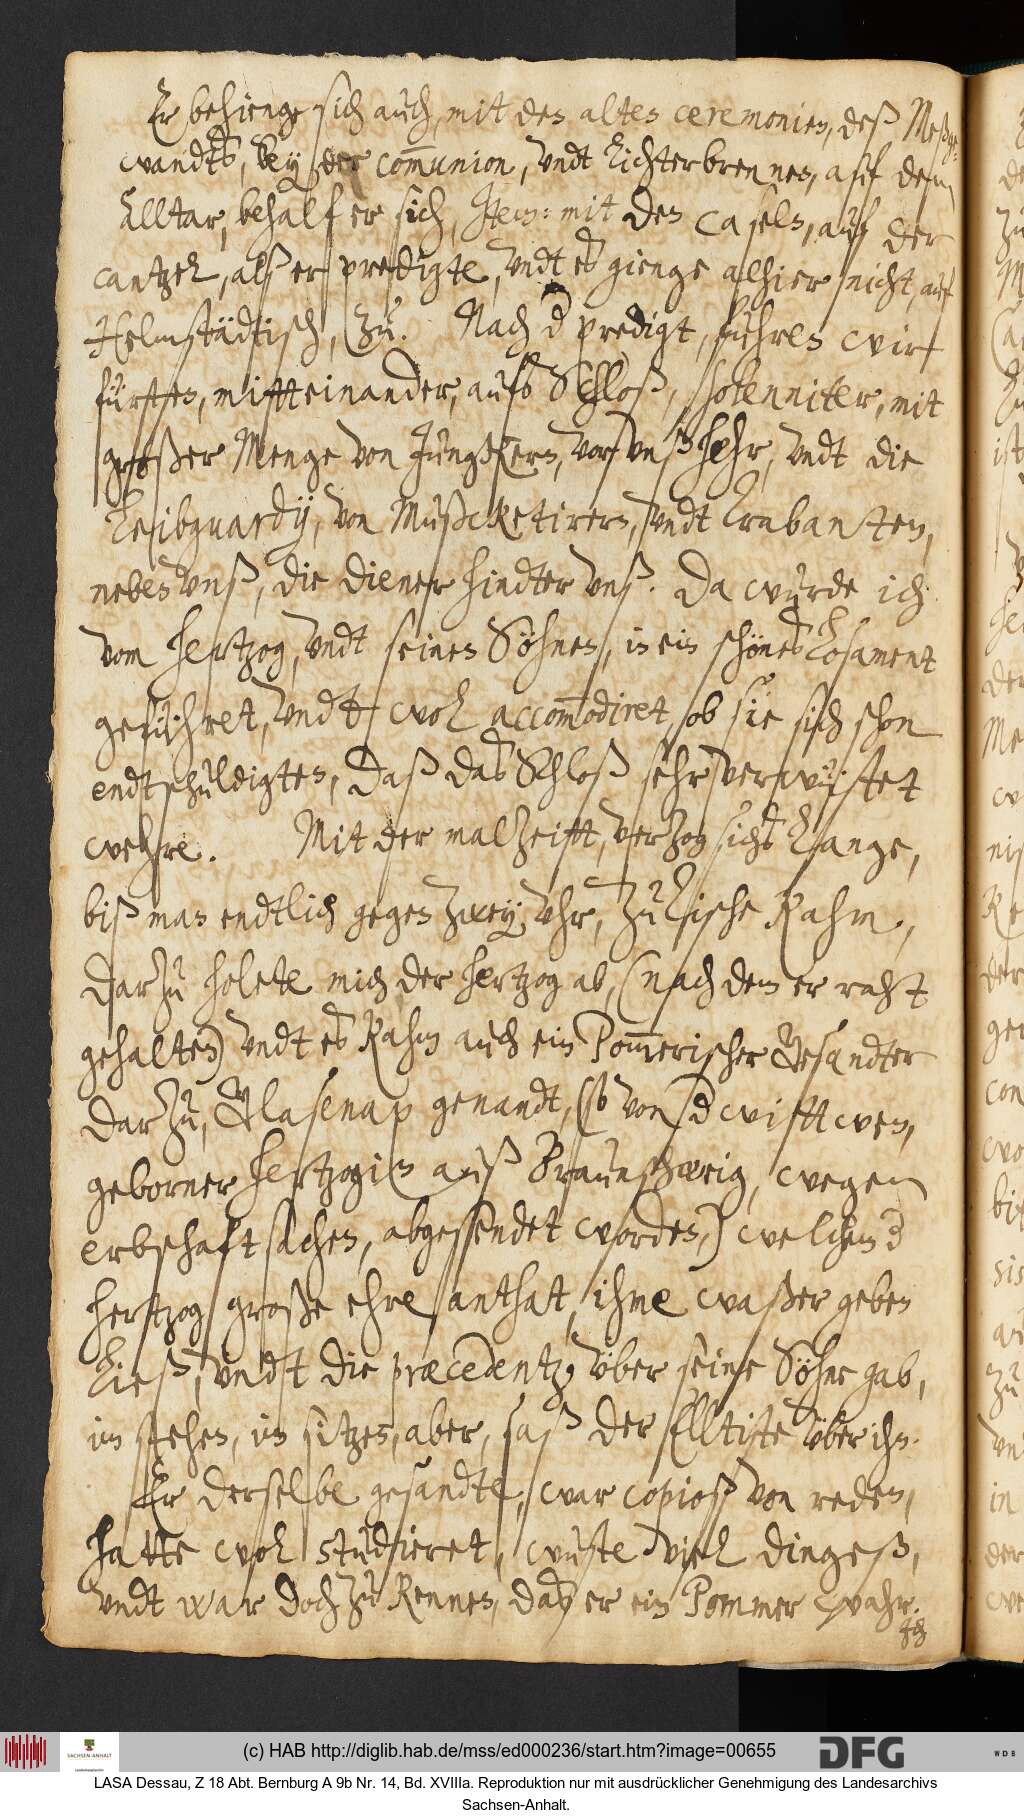 Er behienge sich auch, mit den alten ceremonien, deß Meßge-
wandts, bey der com̄union, undt Lichterbrennen, auf dem
Alltar, behalf er sich, Item: mit den Caseln, auf der
cantzel, alß er predigte, undt es gienge alhier nicht, auf
Helmstädtisch, zu. Nach d predigt, fuhren wir
fürsten, mitteinander, aufs Schloß, solenniter, mit
großer Menge von Jungkern, vor unß hehr, undt die
Leibguardÿ, von Mußcketirern, undt Trabanten,
neben unß, die diener hindter unß. Da wurde ich
vom Hertzog, undt seinen Söhnen, in ein schönes Losament
geführet, undt wol accom̄odiret, ob sie sich schon
endtschuldigten, daß das Schloß sehr verwüstet
wehre. Mit der malzeitt, verzog sichs lange,
biß man endtlich gegen zwey uhr, zu tische kahm,
darzu holete mich der Hertzog ab, (nach dem er raht
gehalten) undt es kahm auch ein Pom̄erischer Gesandter
darzu, Glasenap genandt, (so von d wittwen,
geborner Hertzogin auß Braunschweig, wegen
erbschaft sachen, abgesendet worden,) welchem d
Hertzog große ehre anthat, ihme waßer geben
ließ, undt die præcedentz, über seine Söhne gab,
im stehen, im sitzen, aber, saß der Elltiste über ihn.
Er derselbe gesandte, war copioß von reden,
hatte wol studieret, wuste viel dinges,
undt war doch zu kennen, das er ein Pommer wahr.
Ich
(c) HAB http://diglib.hab.de/mss/ed000236/start.htm?image=00655
DFG
WDB
SACHSEN-ANHALT
LASA Dessau, Z 18 Abt. Bernburg A 9b Nr. 14, Bd. XVIIIa. Reproduktion nur mit ausdrücklicher Genehmigung des Landesarchivs
Sachsen-Anhalt.